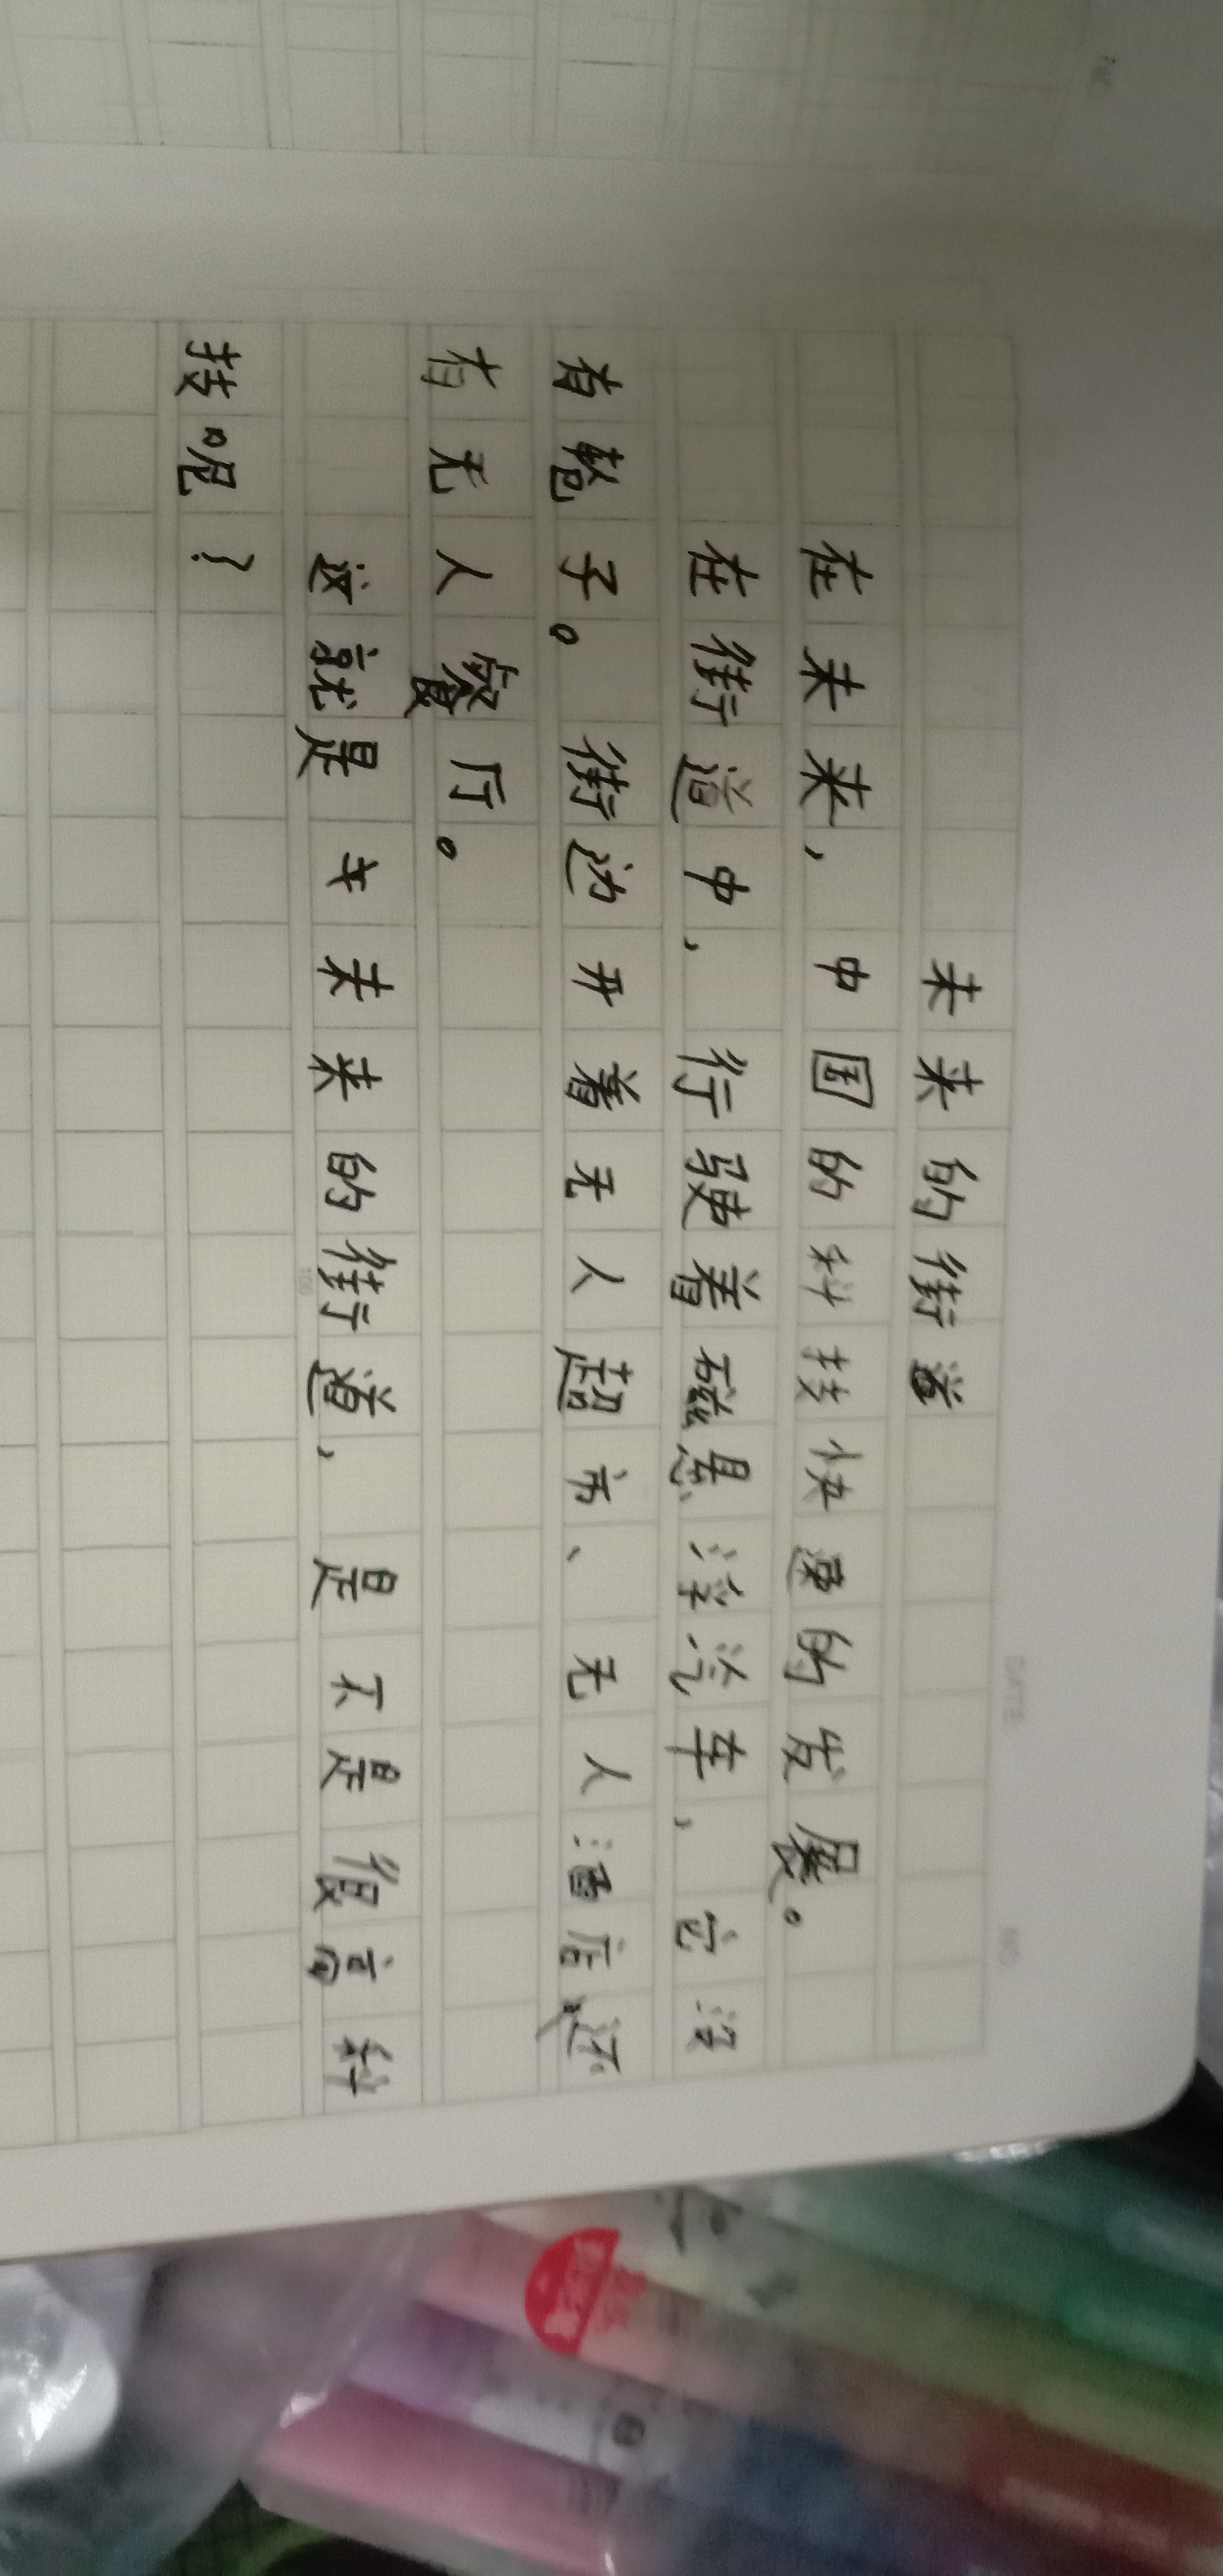 未来的街道
在未来，中国的科技快速的发展。
在街道中，行驶着磁悬浮汽车，它没
有轮子。街边开着无人超市、无人酒店还
有无人餐厅。
这就是未来的街道，是不是很高科
技呢？